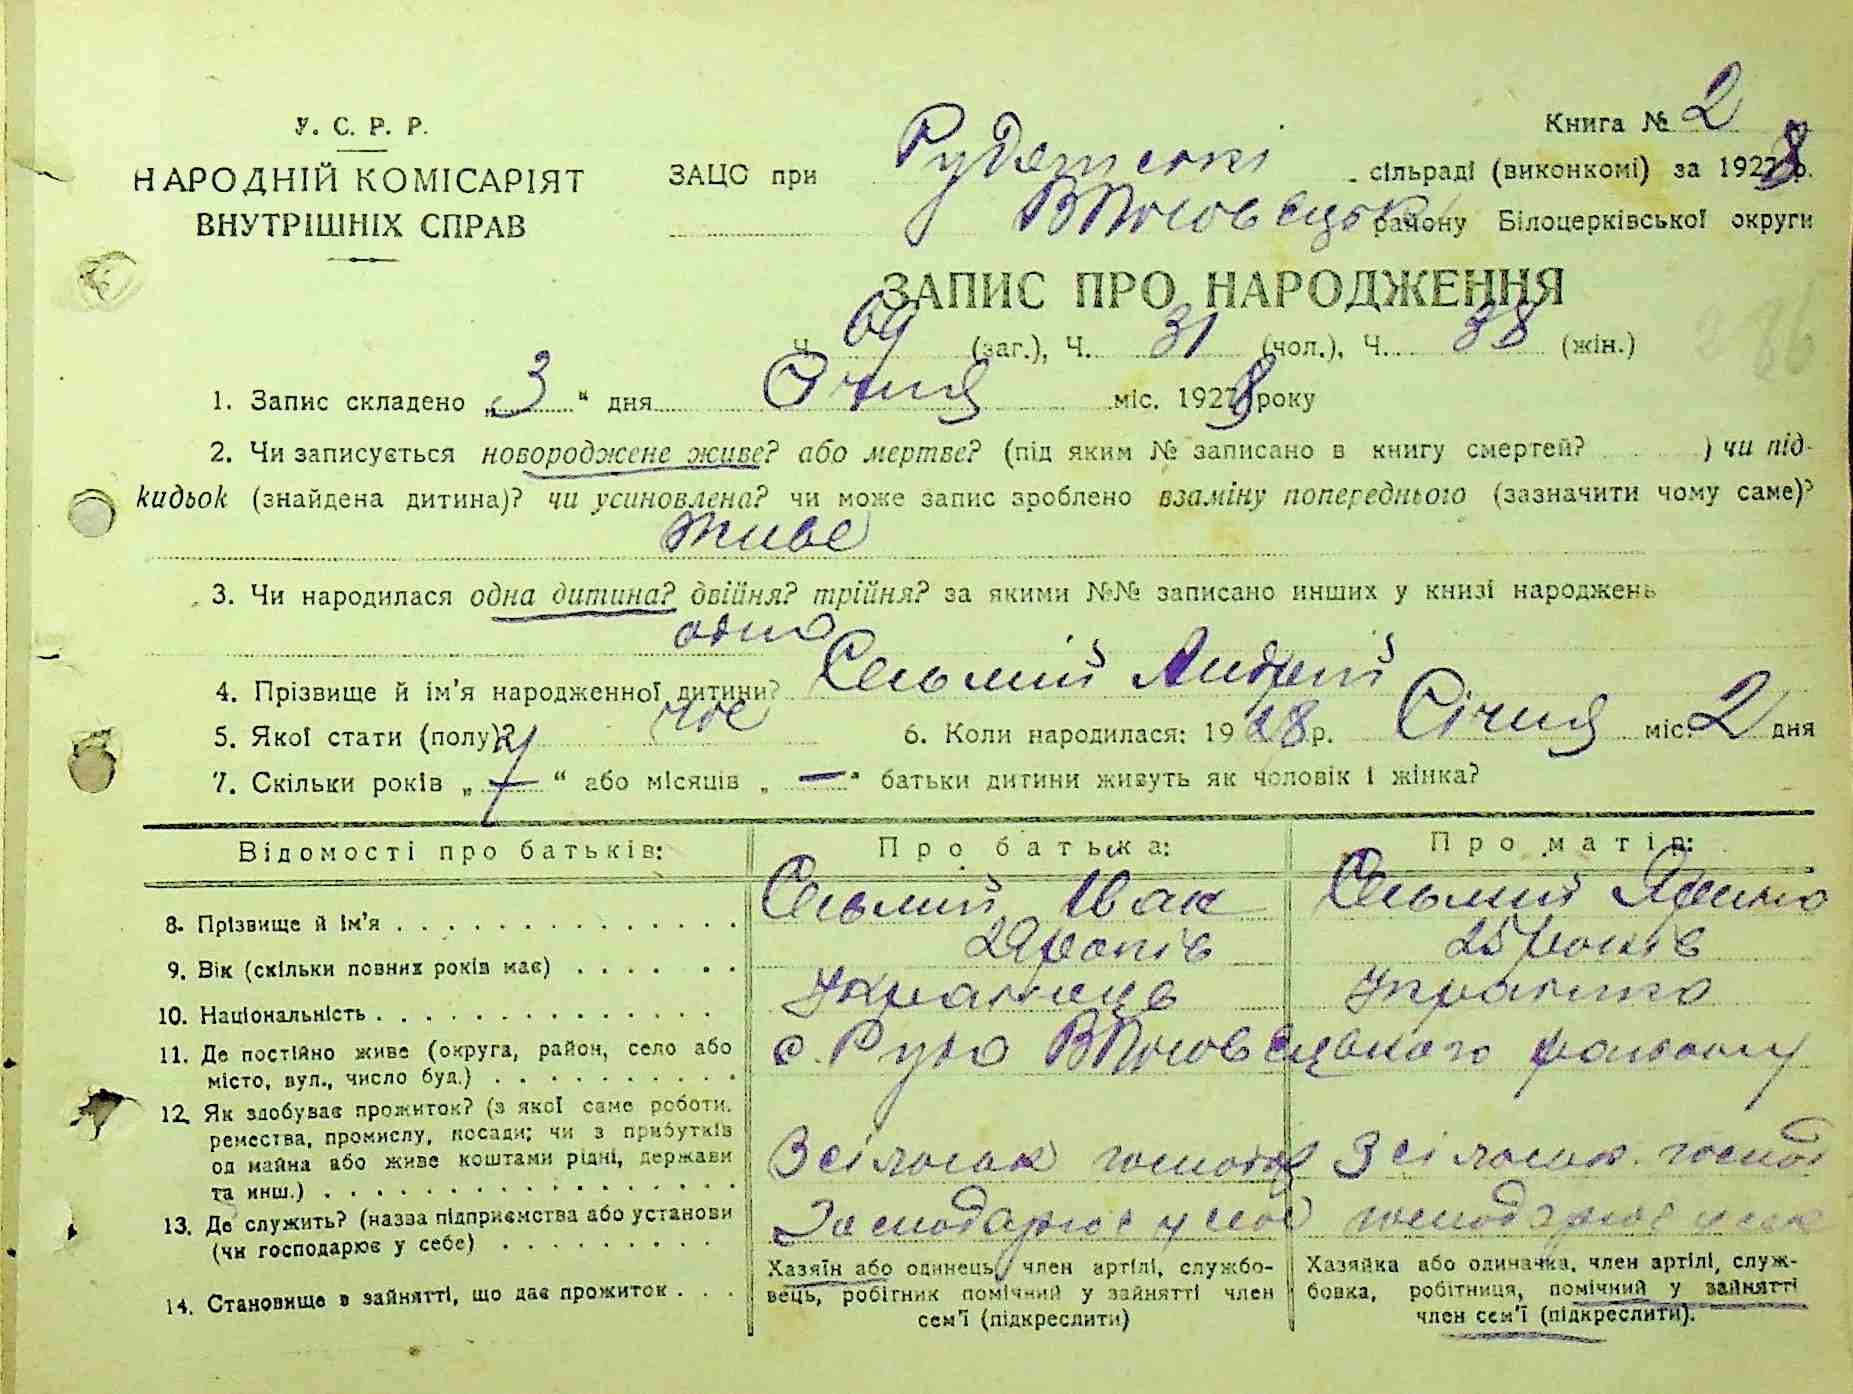 Книга № 2
У. С. Р. Р.
НАРОДНІЙ КОМІСАРІЯТ
ВНУТРІШНІХ СПРАВ
ЗАЦС при Рудянські сільраді (виконкомі) за 1928 р.
району Білоцерківської округи
ЗАПИС ПРО НАРОДЖЕННЯ
Ч. 69 (заг.), Ч. 31 (чол.), Ч. 38 (жін.)
1. Запис складено „ 3 “ дня Січня міс. 1928 року
2. Чи записується новороджене живе? або мертве? (під яким № записано в книгу смертей? ) чи під-
кидьок (знайдена дитина)? чи усиновлена? чи може запис зроблено взаміну попереднього (зазначити чому саме)?
живе
3. Чи народилася одна дитина? двійня? трійня? за якими №№ записано инших у книзі народжень
одна
4. Прізвище й ім'я народженної дитини? Сельмий Андрей
5. Якої стати (полу)? Чол 6. Коли народилася: 1928 р. Січня міс. 2 дня
7. Скільки років „ 7 “ або місяців „ — “ батьки дитини живуть як чоловік і жінка?
Відомості про батьків: Про батька: Про матір:
8. Прізвище й ім'я Сельмий Іван Сельмий
9. Вік (скільки повних років має) 29 років 25 років
10. Національність Українець Українка
11. Де постійно живе (округа, район, село або
місто, вул., число буд.) с. Руда району
12. Як здобуває прожиток? (з якої саме роботи,
ремества, промислу, посади; чи з прибутків
од майна або живе коштами рідні, держави
та инш.) З сільськ господ З сільськ. господ
13. Де служить? (назва підприємства або установи
(чи господарює у себе) Господарює у себе господарює у себе
14. Становище в зайнятті, що дає прожиток
Хазяїн або одинець, член артілі, службо-
вець, робітник помічний у зайнятті член
сем'ї (підкреслити)
Хазяйка або одиначка, член артілі, служ-
бовка, робітниця, помічний у зайнятті
член сем'ї (підкреслити).